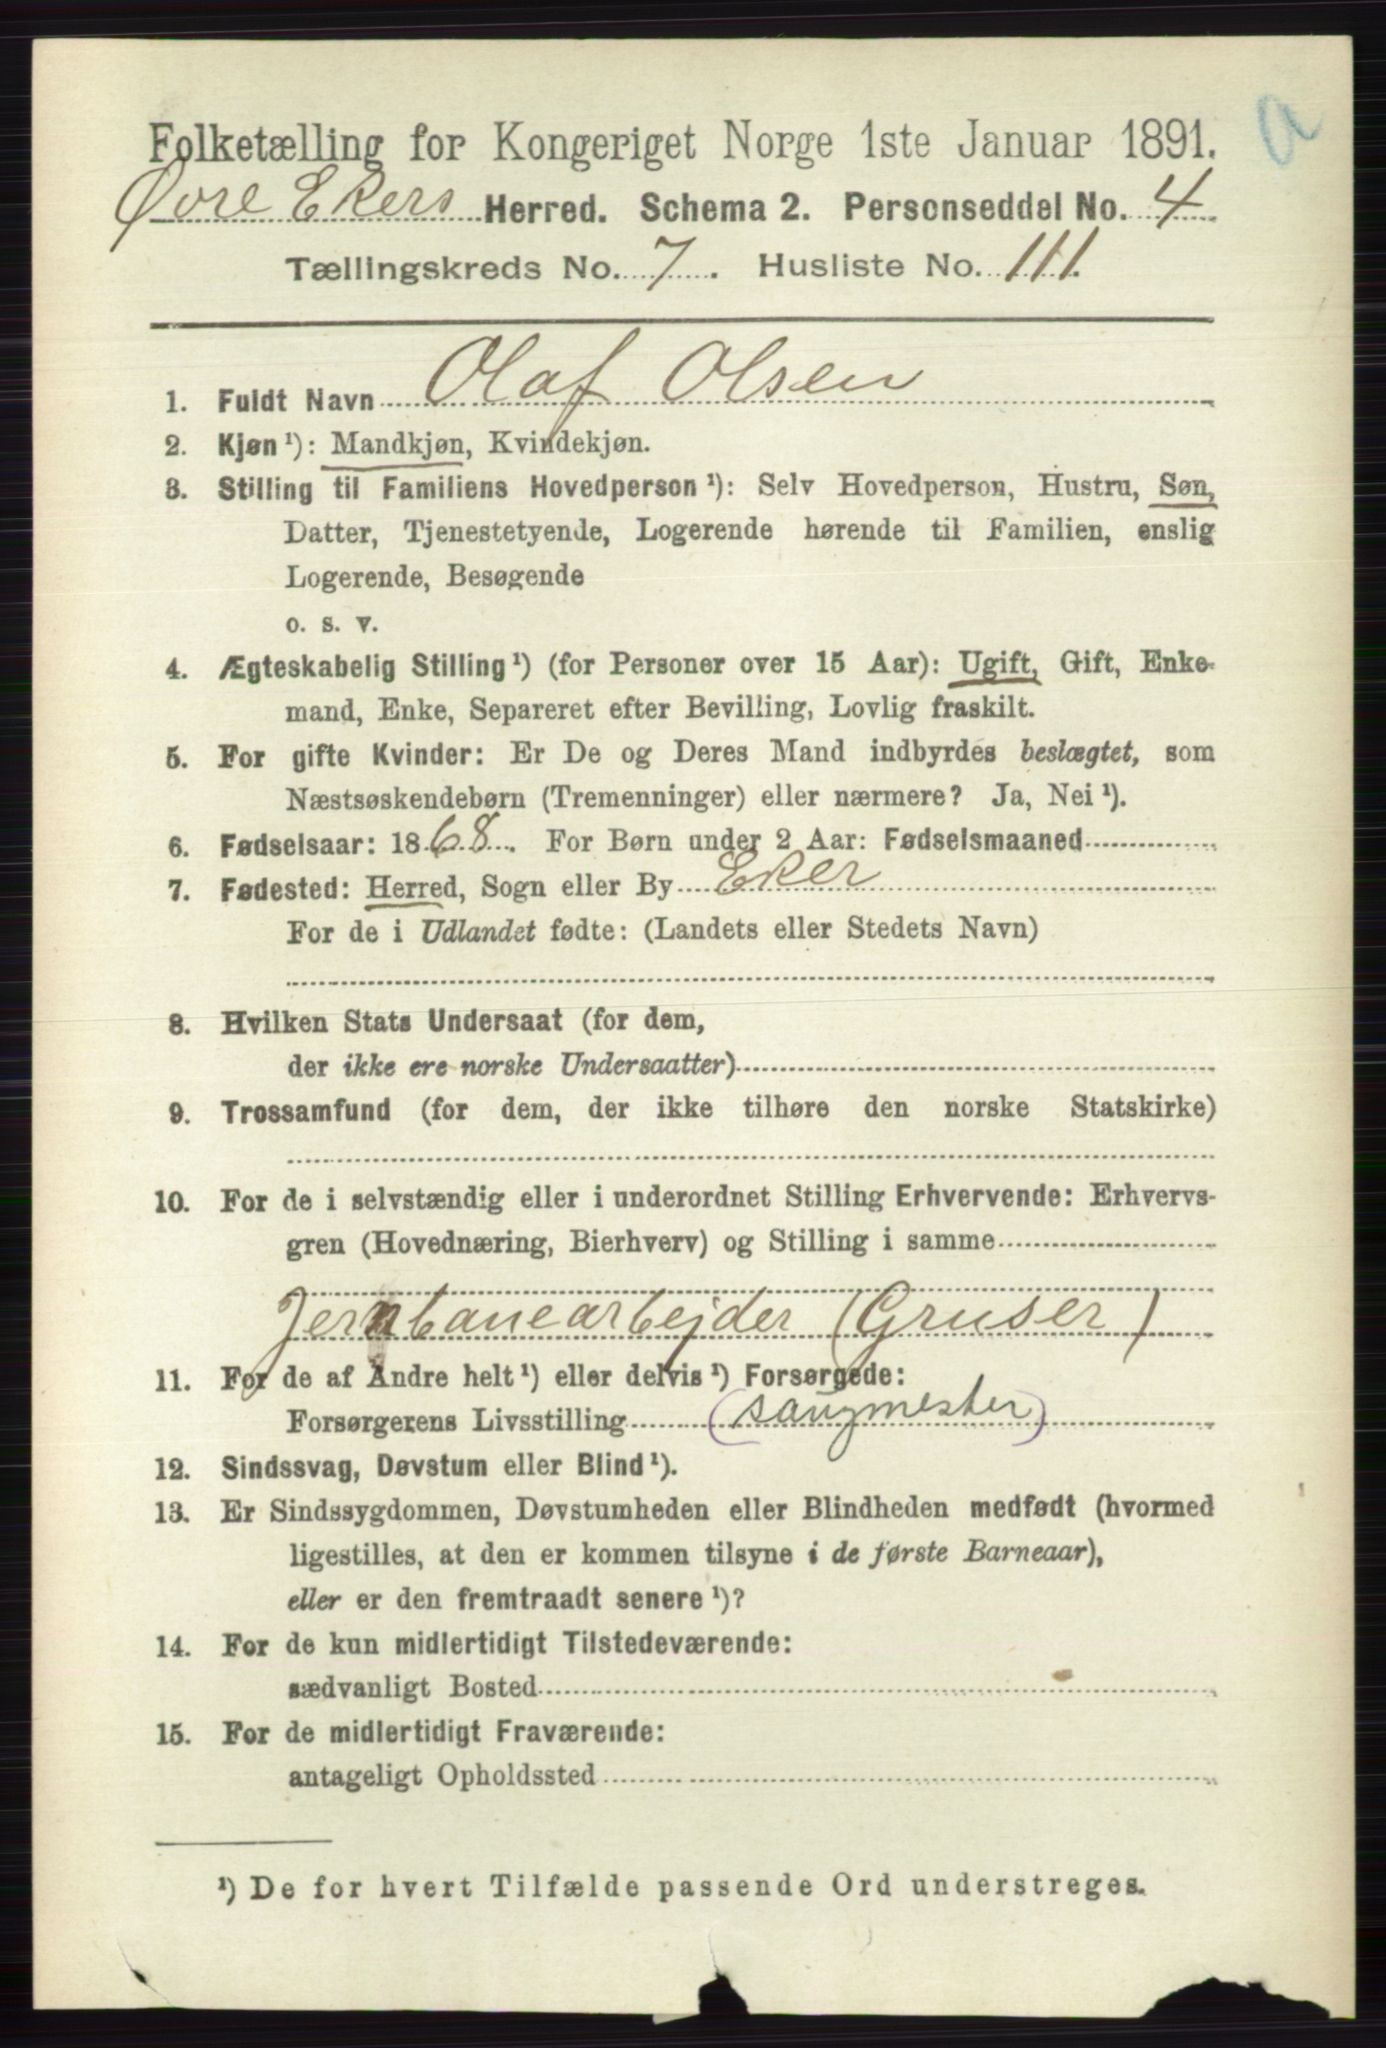 a
Folketælling for Kongeriget Norge 1ste Januar 1891.
Øvre Ekers Herred. Schema 2. Personseddel No. 4
Tællingskreds No. 7. Husliste No. 111.
1. Fuldt Navn Olaf Olsen
2. Kjøn¹): Mandkjøn, Kvindekjøn.
3. Stilling til Familiens Hovedperson¹): Selv Hovedperson, Hustru, Søn,
Datter, Tjenestetyende, Logerende hørende til Familien, enslig
Logerende, Besøgende
o. s. v.
4. Ægteskabelig Stilling¹) (for Personer over 15 Aar): Ugift, Gift, Enke-
mand, Enke, Separeret efter Bevilling, Lovlig fraskilt.
5. For gifte Kvinder: Er De og Deres Mand indbyrdes beslægtet, som
Næstsøskendebørn (Tremenninger) eller nærmere? Ja, Nei¹).
6. Fødselsaar: 1868. For Børn under 2 Aar: Fødselsmaaned
7. Fødested: Herred, Sogn eller By Eker
For de i Udlandet fødte: (Landets eller Stedets Navn)
8. Hvilken Stats Undersaat (for dem,
der ikke ere norske Undersaatter)
9. Trossamfund (for dem, der ikke tilhøre den norske Statskirke)
10. For de i selvstændig eller i underordnet Stilling Erhvervende: Erhvervs-
gren (Hovednæring, Bierhverv) og Stilling i samme
Jernbanearbejder (Gruser)
11. For de af Andre helt¹) eller delvis¹) Forsørgede:
Forsørgerens Livsstilling (saugmester)
12. Sindssvag, Døvstum eller Blind¹).
13. Er Sindssygdommen, Døvstumheden eller Blindheden medfødt (hvormed
ligestilles, at den er kommen tilsyne i de første Barneaar),
eller er den fremtraadt senere¹)?
14. For de kun midlertidigt Tilstedeværende:
sædvanligt Bosted
15. For de midlertidigt Fraværende:
antageligt Opholdssted
¹) De for hvert Tilfælde passende Ord understreges.